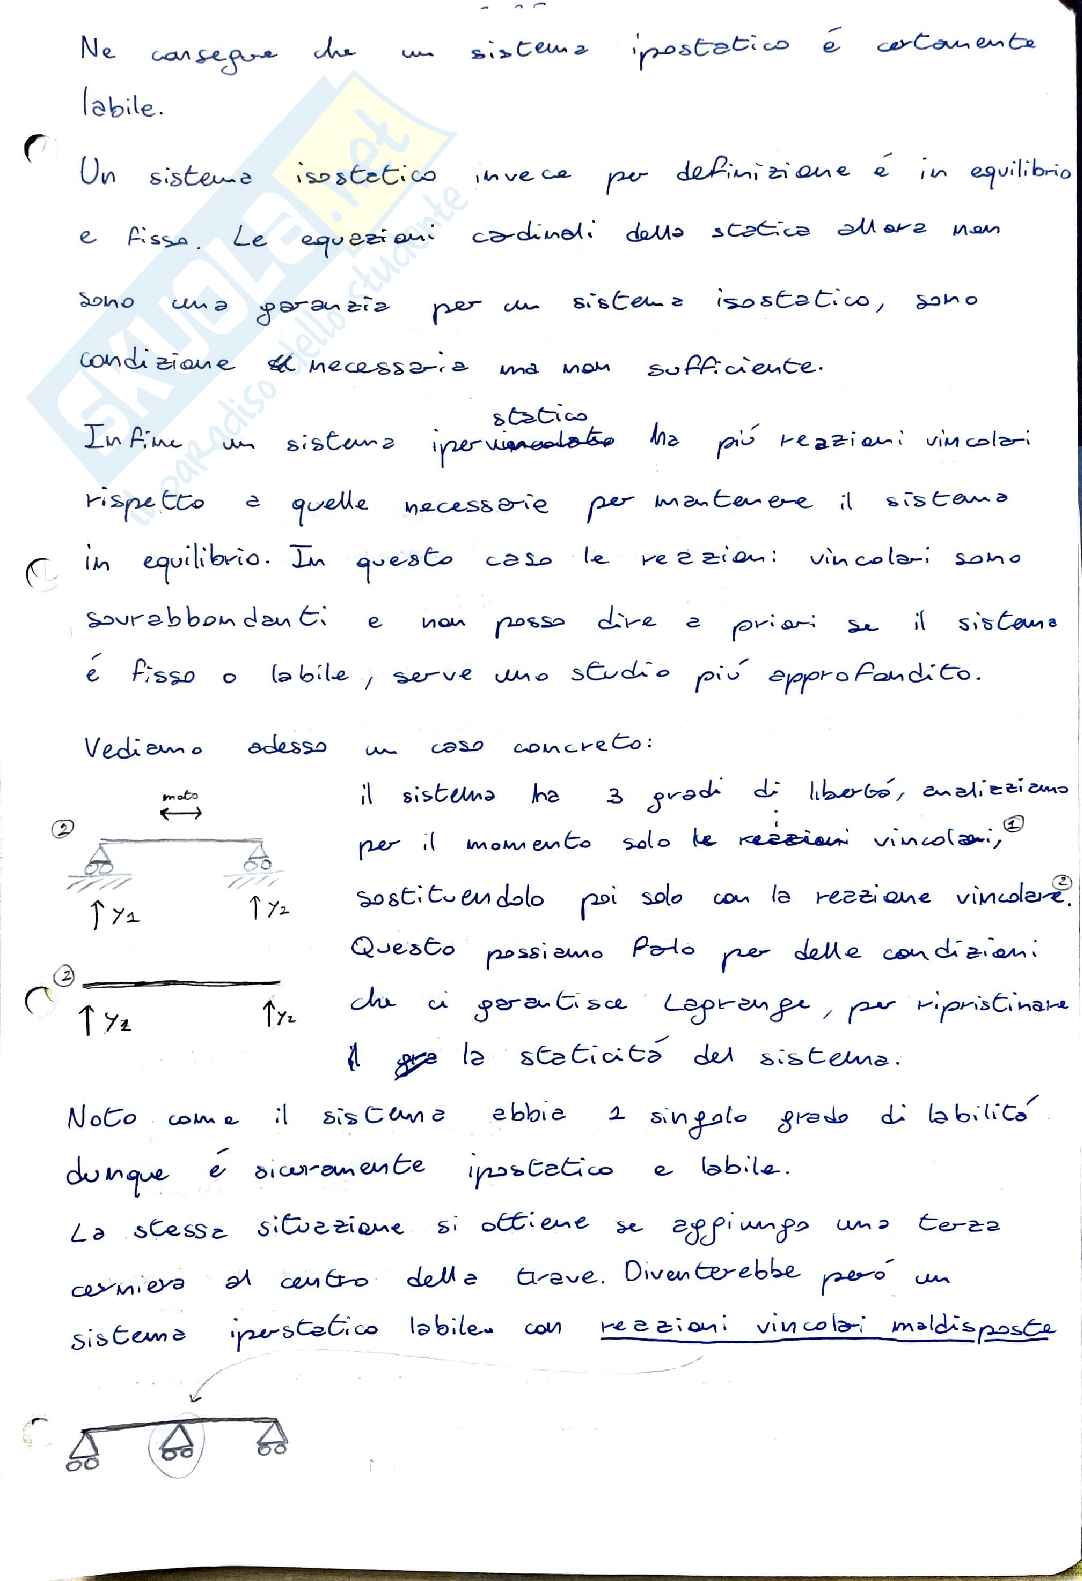 Ne consegue che un sistema ipostatico é certamente
labile.
Un sistema isostatico invece per definizione é in equilibrio
e fisso. Le equazioni cardinali della statica allora non
sono una garanzia per un sistema isostatico, sono
condizione necessaria ma non sufficiente.
statico
Infine un sistema ipervincolato ha piú reazioni vincolari
rispetto a quelle necessarie per mantenere il sistema
in equilibrio. In questo caso le reazioni vincolari sono
sovrabbondanti e non posso dire a priori se il sistema
é fisso o labile, serve uno studio piú approfondito.
Vediamo adesso un caso concreto:
moto
il sistema ha 3 gradi di libertá, analizziamo
per il momento solo i vincoli, ①
sostituendolo poi solo con la reazione vincolare. ②
Questo possiamo farlo per delle condizioni
che ci garantisce Lagrange, per ripristinare
la staticitá del sistema.
②
↑ Y1 ↑ Y2
②
↑ Y1 ↑ Y2
Noto come il sistema abbia 1 singolo grado di labilitá
dunque é sicuramente ipostatico e labile.
La stessa situazione si ottiene se aggiungo una terza
cerniera al centro della trave. Diventerebbe peró un
sistema iperstatico labile con reazioni vincolari maldisposte
SKUOLA.net
il paradiso dello studente